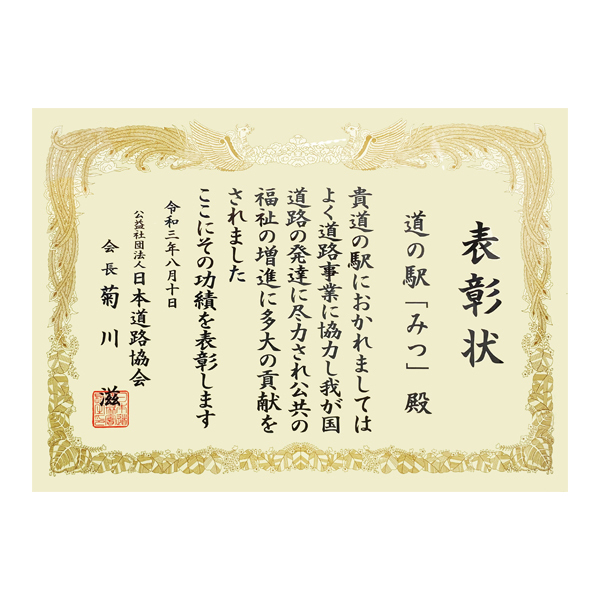 表彰状
道の駅「みつ」殿
貴道の駅におかれましては
よく道路事業に協力し我が国
道路の発達に尽力され公共の
福祉の増進に多大の貢献を
されました
ここにその功績を表彰します
令和三年八月十日
公益社団法人日本道路協会
会長 菊川 滋